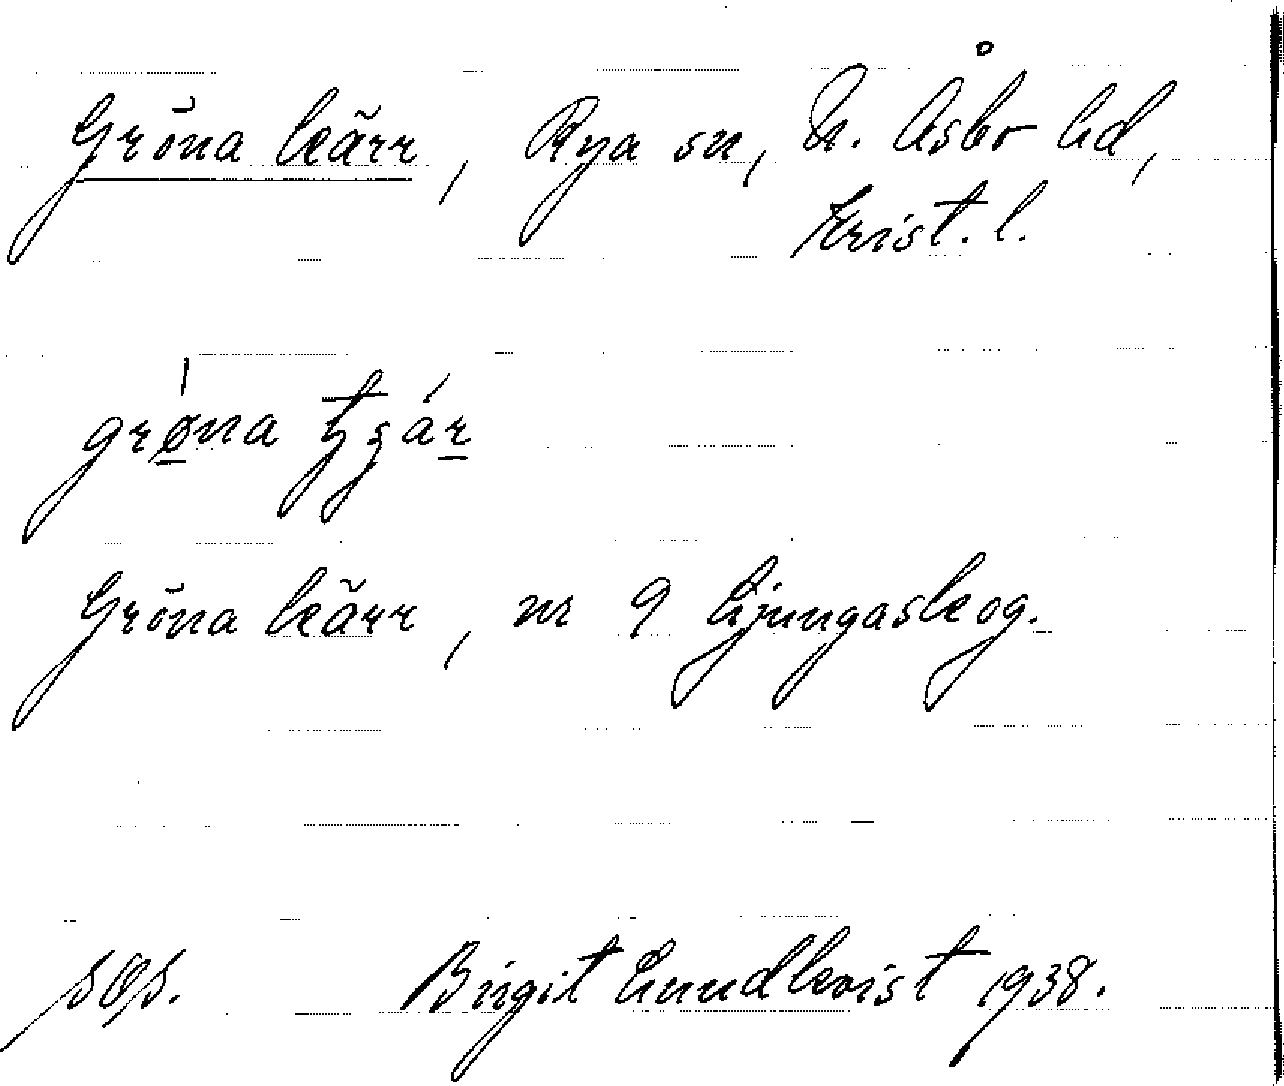 Gröna kärr, Rya sn, N. Åsbo hd,
Krist. l.
Gröna kärr, nr 9 Ljungaskog.
Birgit Lundkvist 1938.